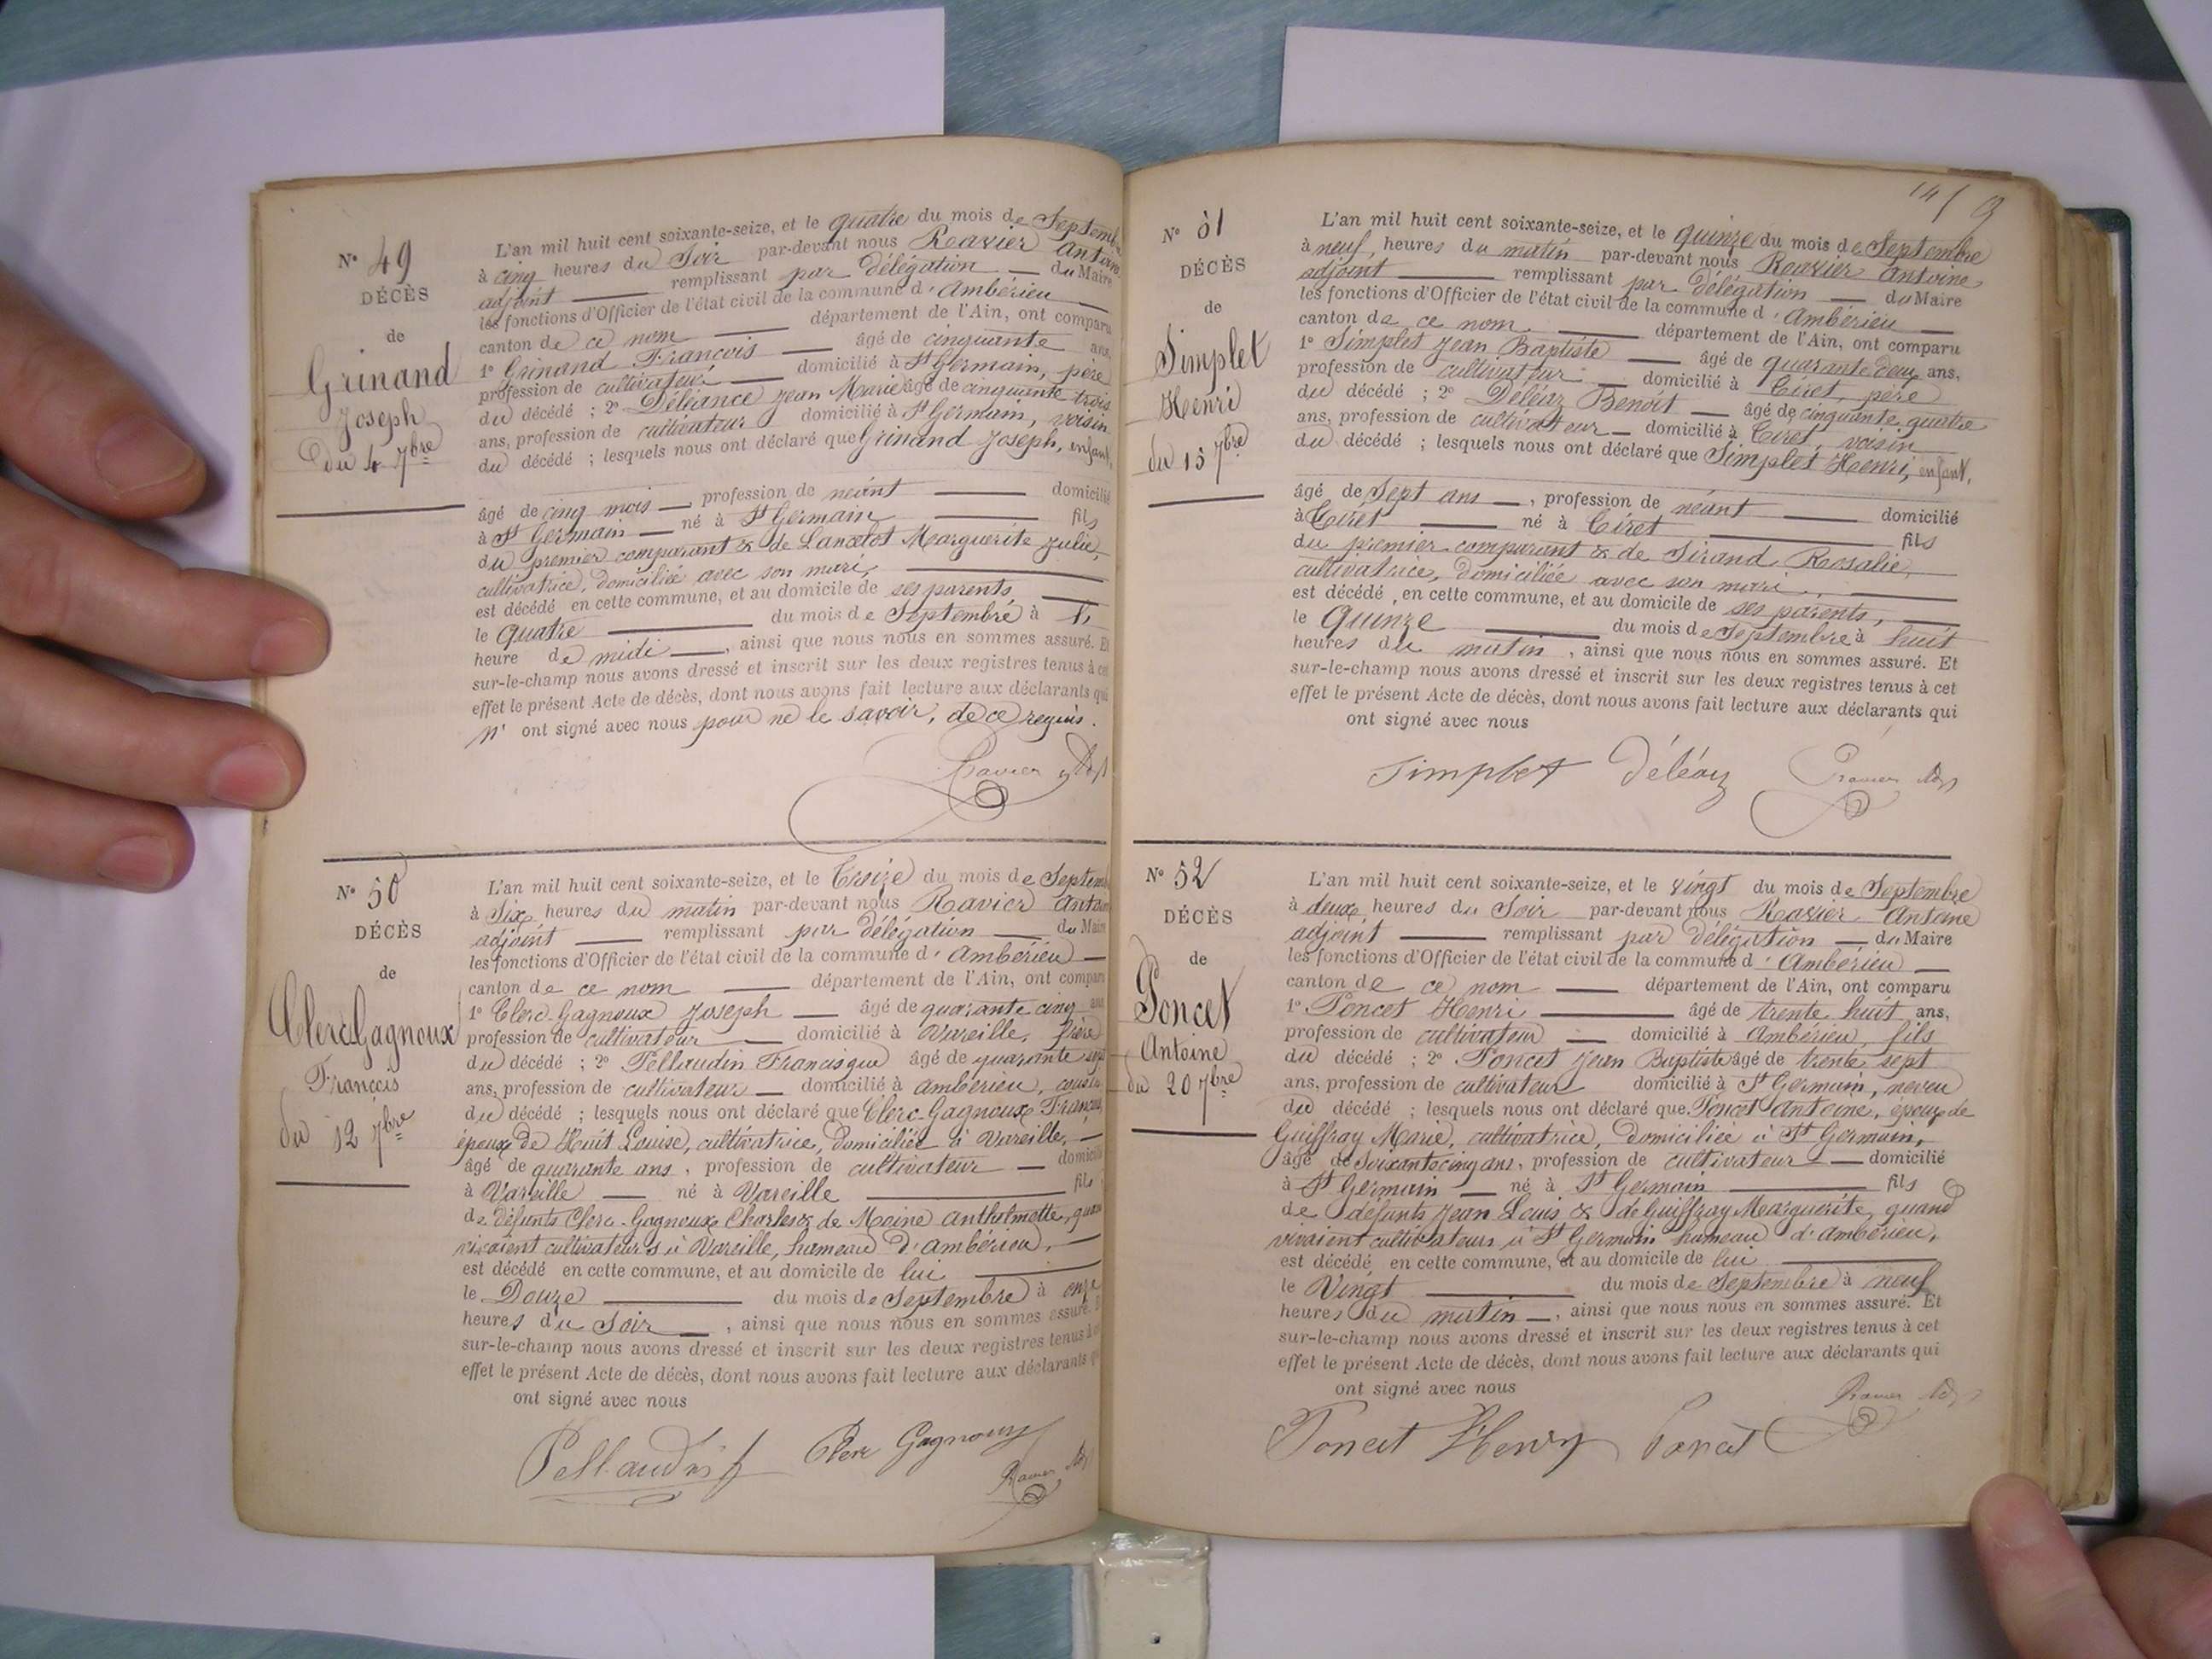 N° 49
DÉCÈS
de
Grinand
Joseph
du 4 7bre
L'an mil huit cent soixante-seize, et le quatre du mois de Septemb
à cinq heures du Soir par-devant nous Ravier Antoine
adjoint remplissant par délégation du Maire
les fonctions d'Officier de l'état civil de la commune d'Ambérieu
canton de ce nom département de l'Ain, ont comparu
1° Grinand François âgé de cinquante ans,
profession de cultivateur domicilié à St Germain, père
du décédé ; 2° Déléance Jean Marie âgé de cinquante trois
ans, profession de cultivateur domicilié à St Germain, voisin
du décédé ; lesquels nous ont déclaré que Grinand Joseph, enfant,
âgé de cinq mois, profession de néant domicilié
à St Germain né à St Germain fils
du premier comparant & de Lancelot Marguerite Julie,
cultivatrice, domiciliée avec son mari,
est décédé en cette commune, et au domicile de ses parents
le quatre du mois de Septembre à
heure de midi, ainsi que nous nous en sommes assuré. Et
sur-le-champ nous avons dressé et inscrit sur les deux registres tenus à cet
effet le présent Acte de décès, dont nous avons fait lecture aux déclarants qui
n' ont signé avec nous pour ne le savoir, de ce requis.
Ravier Adj
N° 50
DÉCÈS
de
Clerc-Gagnoux
François
du 12 7bre
L'an mil huit cent soixante-seize, et le Treize du mois de Septem
à Six heures du matin par-devant nous Ravier Antoi
adjoint remplissant par délégation du Maire
les fonctions d'Officier de l'état civil de la commune d'Ambérieu
canton de ce nom département de l'Ain, ont comparu
1° Clerc-Gagnoux Joseph âgé de quarante cinq ans
profession de cultivateur domicilié à Vareille, frère
du décédé ; 2° Pellaudin Francisque âgé de quarante sept
ans, profession de cultivateur domicilié à ambérieu, cousin
du décédé ; lesquels nous ont déclaré que Clerc-Gagnoux François,
époux de Huit Louise, cultivatrice, domiciliée à Vareille,
âgé de quarante ans, profession de cultivateur domicilié
à Vareille né à Vareille fils
de défunts Clerc-Gagnoux Charles & de Moine Anthelmette, quand
vivaient cultivateurs à Vareille, hameau d'ambérieu,
est décédé en cette commune, et au domicile de lui
le Douze du mois de Septembre à onze
heures du Soir, ainsi que nous nous en sommes assuré. E
sur-le-champ nous avons dressé et inscrit sur les deux registres tenus à c
effet le présent Acte de décès, dont nous avons fait lecture aux déclarants qu
ont signé avec nous
Pellaudin f Clerc Gagnoux
Ravier Adj
N° 51
DÉCÈS
de
Simplet
Henri
du 15 7bre
L'an mil huit cent soixante-seize, et le quinze du mois de Septembre
à neuf, heures du matin par-devant nous Ravier Antoine
adjoint remplissant par délégation du Maire
les fonctions d'Officier de l'état civil de la commune d'Ambérieu
canton de ce nom. département de l'Ain, ont comparu
1° Simplet Jean Baptiste âgé de quarante deux ans,
profession de cultivateur domicilié à Tiret, père
du décédé ; 2° Déléaz Benoît âgé de cinquante quatre
ans, profession de cultivateur domicilié à Tiret, voisin
du décédé ; lesquels nous ont déclaré que Simplet Henri, enfant,
âgé de Sept ans, profession de néant domicilié
à Tiret né à Tiret fils
du premier comparant & de Sirand Rosalie,
cultivatrice, domiciliée avec son mari,
est décédé, en cette commune, et au domicile de ses parents,
le Quinze du mois de Septembre à huit
heures du matin, ainsi que nous nous en sommes assuré. Et
sur-le-champ nous avons dressé et inscrit sur les deux registres tenus à cet
effet le présent Acte de décès, dont nous avons fait lecture aux déclarants qui
ont signé avec nous
Simplet Déléaz Ravier Adj
N° 52
DÉCÈS
de
Poncet
Antoine
du 20 7bre
L'an mil huit cent soixante-seize, et le vingt du mois de Septembre
à deux heures du Soir par-devant nous Ravier Antoine
adjoint remplissant par délégation du Maire
les fonctions d'Officier de l'état civil de la commune d'Ambérieu
canton de ce nom département de l'Ain, ont comparu
1° Poncet Henri âgé de trente huit ans,
profession de cultivateur domicilié à Ambérieu, fils
du décédé ; 2° Poncet Jean Baptiste âgé de trente sept
ans, profession de cultivateur domicilié à St Germain, neveu
du décédé ; lesquels nous ont déclaré que Poncet Antoine, époux de
Guiffray Marie, cultivatrice, domiciliée à St Germain,
âgé de Soixante cinq ans, profession de cultivateur domicilié
à St Germain né à St Germain fils
de défunts Jean Louis & de Guiffray Marguerite, quand
vivaient cultivateurs à St Germain hameau d'ambérieu,
est décédé en cette commune, et au domicile de lui
le Vingt du mois de Septembre à neuf
heures du matin, ainsi que nous nous en sommes assuré. Et
sur-le-champ nous avons dressé et inscrit sur les deux registres tenus à cet
effet le présent Acte de décès, dont nous avons fait lecture aux déclarants qui
ont signé avec nous
Poncet Henry Poncet Ravier Adj